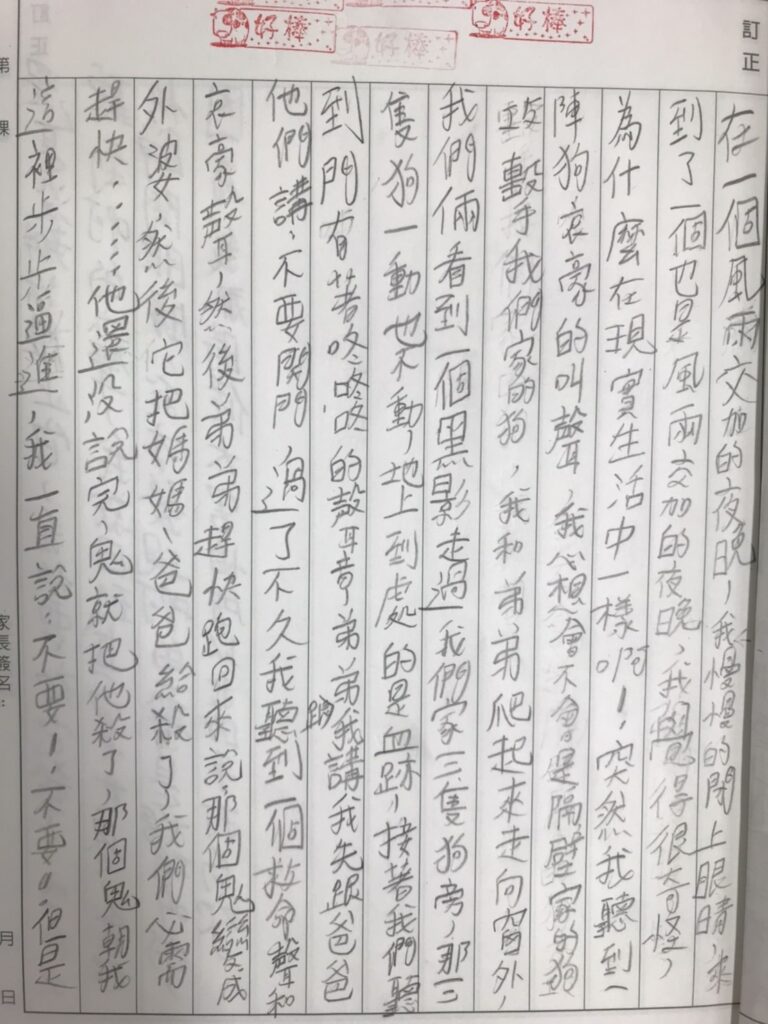 好棒
好棒
好棒
訂正
第 課
家長簽名：
月 日
在一個風雨交加的夜晚，我慢慢的閉上眼睛，來
到了一個也是風雨交加的夜晚，我覺得很奇怪，
為什麼在現實生活中一樣啊！，突然我聽到一
陣狗哀豪的叫聲，我心想會不會是隔壁家的狗
我們家的狗，我和弟弟爬起來走向窗外，
我們倆看到一個黑影走過我們家三隻狗旁，那三
隻狗一動也不動，地上到處的是血跡，接著我們聽
到門有著咚咚咚的聲音，弟弟跟我講，我先跟爸爸
他們講，不要開門，過了不久我聽到一個救命聲和
哀豪聲，然後弟弟趕快跑回來說，那個鬼變成
外婆，然後它把媽媽、爸爸給殺了，我們必需
趕快……他還沒說完，鬼就把他殺了，那個鬼朝我
這裡步步逼進，我一直說：不要！，不要！，但是